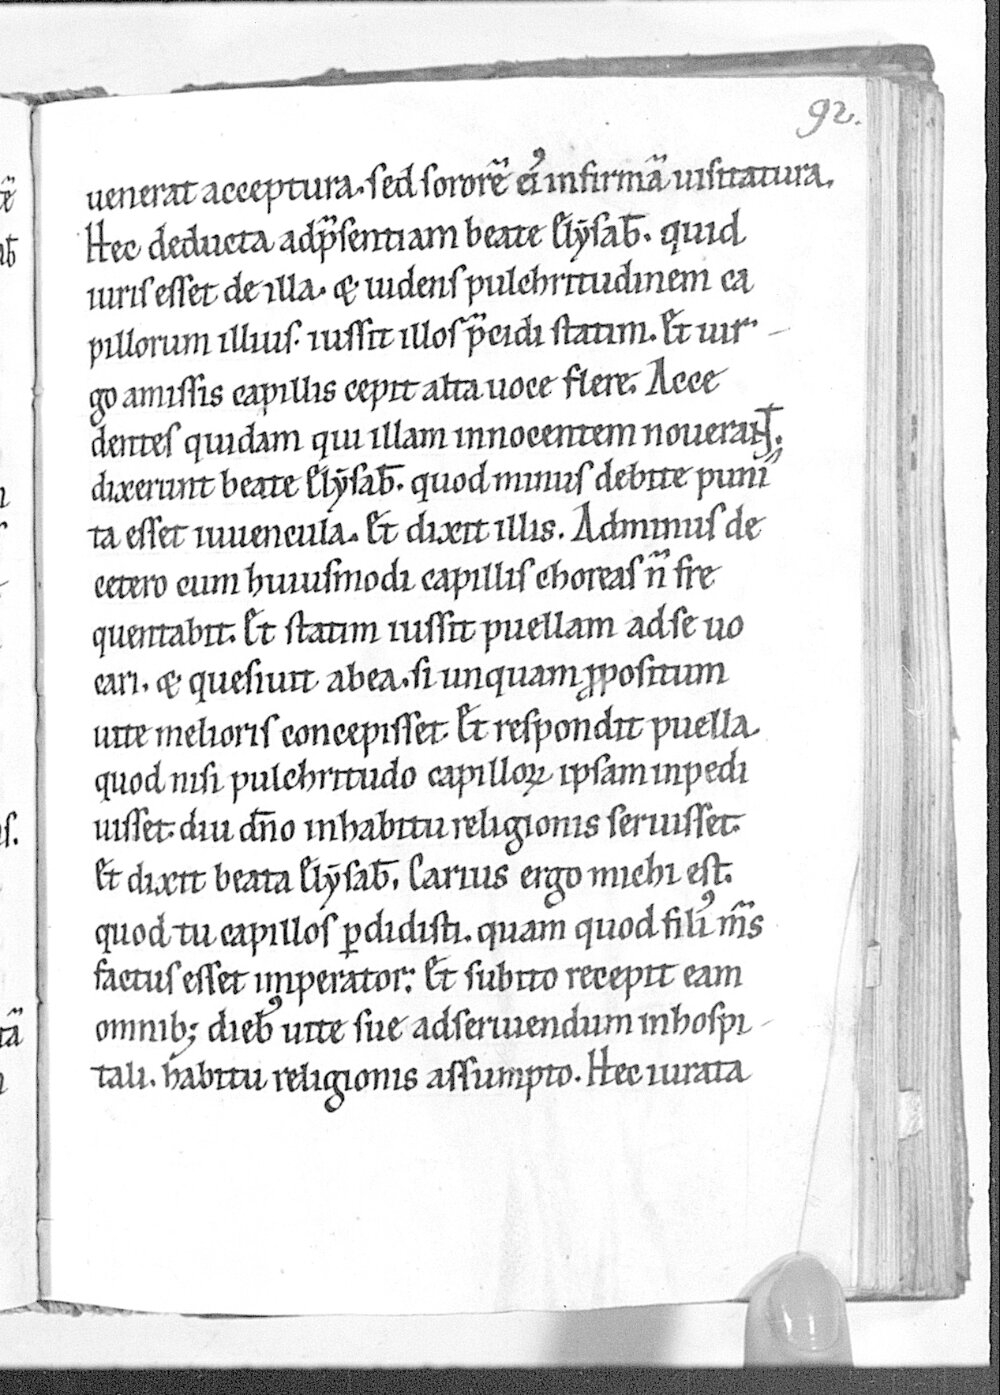 92.
uenerat acceptura. sed sororē ei᾿ infirmā uisitatura.
Hec deducta adp̄sentiam beate Elẏsab̄. quid
iuris esset de illa. & uidens pulchritudinem ca
pillorum illius. iussit illos p̄cidi statim. Et uir-
go amissis capillis cepit alta uoce flere. Acce
dentes quidam qui illam innocentem nouerant.
dixerunt beate Elẏsab̄. quod minus debite puni
ta esset iuuencula. Et dixit illis. Adminus de
cetero cum huiusmodi capillis choreas n̄ fre
quentabit. Et statim iussit puellam adse uo
cari. & quesiuit abea. si unquam ꝓpositum
uite melioris concepisset. Et respondit puella.
quod nisi pulchritudo capilloꝝ ipsam inpedi
uisset. diu dn̄o inhabitu religionis seruisset.
Et dixit beata Elẏsab̄. Carius ergo michi est.
quod tu capillos ꝑdidisti. quam quod fili᾿ m̄s
factus esset imperator; Et subito recepit eam
omnib; dieb᾿ uite sue adseruiendum inhospi-
tali. habitu religionis assumpto. Hec iurata